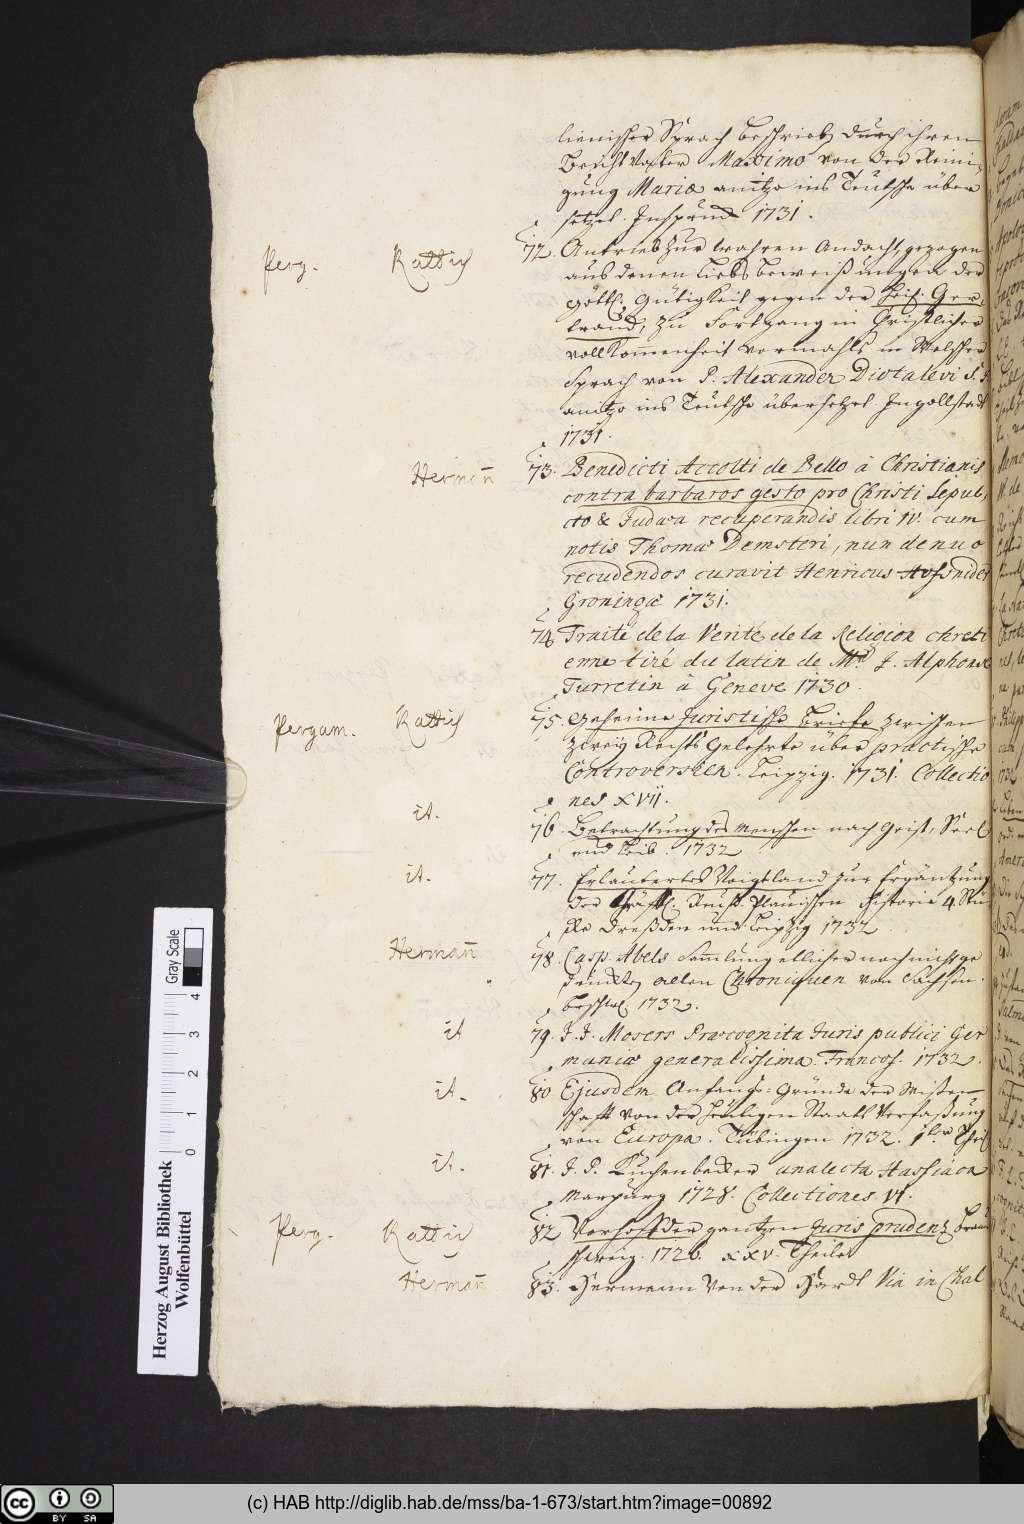 lienischer Sprach beschrieben durch ihren
Beicht Vatter Maximo von der Reini-
gung Mariæ anitzo ins Teütsche über
setzet. Insprud 1731.
Perg. Rattig 72. Antrieb zur wahren Andacht, gezogen
aus denen Liebs beweißungen der
Göttl. Gütigkeit gegen der heil. Ger
traud, zu Fortgang in Christlicher
vollkommenheit vormahls in Welscher
Sprach von P. Alexander Diotalevi S. J.
anitzo ins Teütsche übersetzet. Ingollstadt
1731.
Hermañ 73. Benedicti Accolti de Bello à Christianis
contra barbaros gesto pro Christi Sepul,
cro & Judæa recuperandis libri IV. cum
notis Thomæ Demsteri, nun denuo
recudendos curavit Henricus Hofsnider
Groningæ 1731.
74 Traité de la Verité de la Religion chreti
enne tiré du latin de Mr. J. Alphonse
Turretin à Geneve 1730.
Pergam. Rattig 75. Geheime Juristische Briefe zwischen
zweÿ Rechts Gelehrte über practische
Controversien. Leipzig. 1731. Collectio
nes XVII.
it. 76. Betrachtung des Menschen nach Geist, Seel
und Leib. 1732
it. 77. Erläutertes Voigtland zur Ergäntzung
der Gräffl. Reuß. Plauischen Historie 4. Stü
cke Dreßden und Leipzig 1732
Hermañ 78. Casp. Abels Sammlung etlicher noch nicht ge
druckten alten Chroniquen von Sachsen.
1732.
it 79. J. J. Mosers Præcognita Juris publici Ger
maniæ generalissima. Francof. 1732.
it. 80 Ejusdem Anfangs-Gründe der Wissen
schafft von der heütigen Staats Verfaßung
von Europa. Tübingen 1732. 1ter Theil
it. 81. J. P. Kuchenbecker analecta Hassiaca
Marpurg 1728. Collectiones VI.
Perg. Rattig 82 Vorhoff der gantzen Juris prudenz Braun
schweig. 1726. XXV. Theile
Hermañ 83. Hermann Von der Hardt Via in Chal
Herzog August Bibliothek
Wolfenbüttel
0 1 2 3 4
Gray Scale
cc BY SA
(c) HAB http://diglib.hab.de/mss/ba-1-673/start.htm?image=00892